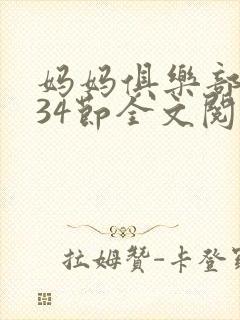 妈妈俱樂部
34節全文閱
拉姆贊-卡登